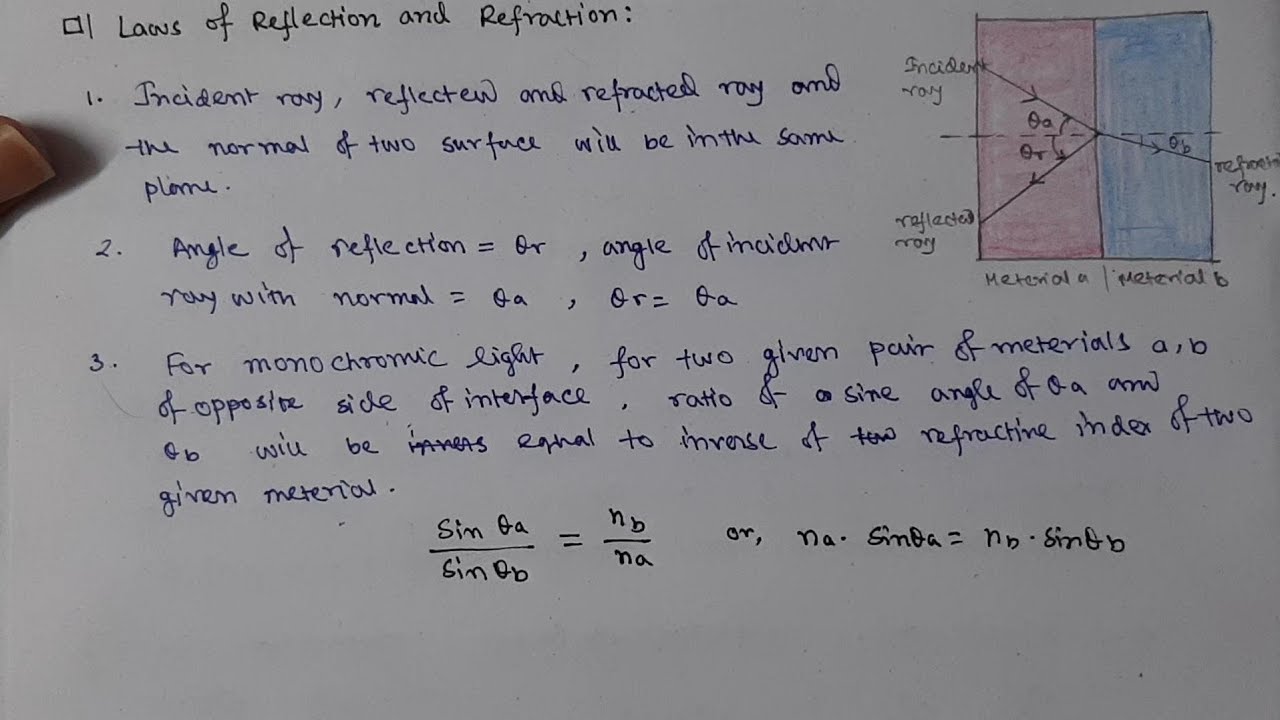 Laws of Reflection and Refraction:
1. Incident ray, reflected and refracted ray and
the normal of two surface will be in the same
plane.
2. Angle of reflection = θr , angle of incident
ray with normal = θa , θr = θa
3. For monochromic light , for two given pair of meterials a, b
of opposite side of interface , ratio of sine angle of θa and
θb will be equal to inverse of refractive index of two
given meterial.
sin θa / sin θb = nb / na or, na · sinθa = nb · sinθb
Incident
ray
θa
θr
θb
refracted
ray.
reflected
ray
Meterial a | Meterial b